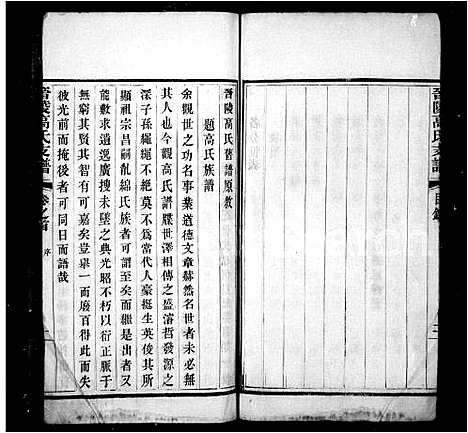 晉陵高氏支譜
目錄
晉陵高氏舊譜原敘
題高氏族譜
余觀世之功名事業道德文章赫然名世者不必無
其人也今觀高氏譜牒世澤相傳之盛濬哲發源之
深子孫繩繩不絶莫不為當代人豪挺生英俊其所
顯祖宗昌嗣亂綿氏族者可謂至矣而繼是出者又
能數求過逸未墜之典光昭不朽以衍正脈於
無窮其賢其智有可嘉矣豈舉一而廢百得此而失
彼光前而掩後者可同日而語哉
晉陵高氏支譜
卷之首
序
一